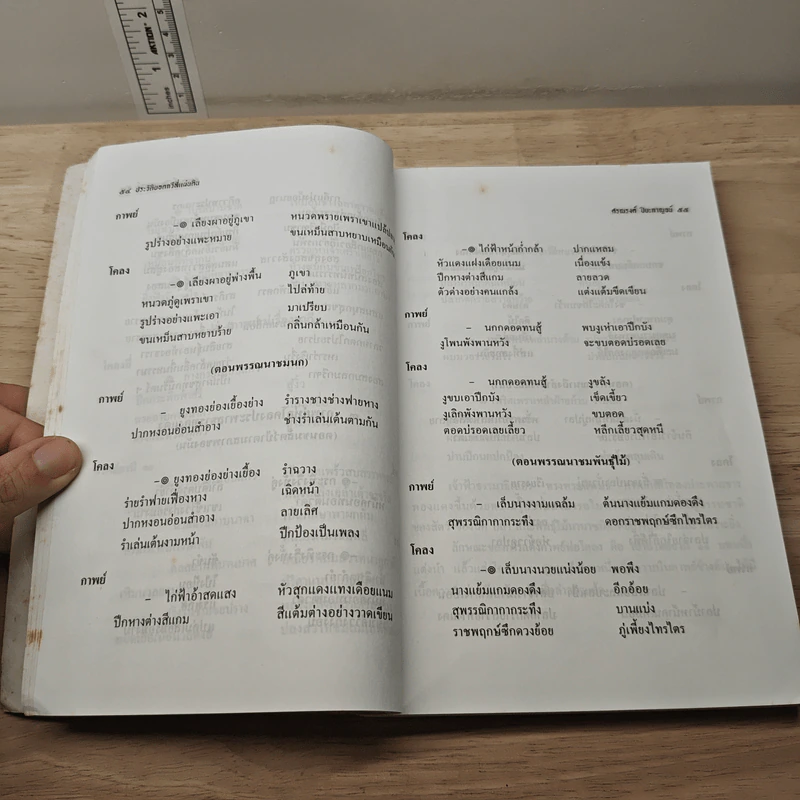 ๕๔ ประวัติยอดกวีสี่แผ่นดิน
กาพย์
-๏ เลียงผาอยู่ภูเขา หนวดพรายเพราเขาแปล้ปลาย
รูปร่างอย่างแพะหมาย ขนเหม็นสาบหยาบเหมือนกัน
โคลง
-๏ เลียงผาอยู่ฟ่างพื้น ภูเขา
หนวดภู่ดูเพราเขา ไปล่ท้าย
รูปร่างอย่างแพะเอา มาเปรียบ
ขนเหม็นสาบหยาบร้าย กลิ่นกล้าเหมือนกัน
(ตอนพรรณนาชมนก)
กาพย์
- ยูงทองย่องเยื้องย่าง รำรางชางช่างฟายหาง
ปากหงอนอ่อนสำอาง ช่างรำเล่นเต้นตามกัน
โคลง
-๏ ยูงทองย่องย่างเยื้อง รำฉวาง
ร่ายรำฟายเฟื่องหาง เฉิดหน้า
ปากหงอนอ่อนสำอาง ลายเลิศ
รำเล่นเต้นงามหน้า ปีกป้องเป็นเพลง
กาพย์
- ไก่ฟ้าอ้าสดแสง หัวสุกแดงแทงเดือยแนม
ปีกหางต่างสีแกม สีแต้มต่างอย่างวาดเขียน
๕๕
โคลง
-๏ ไก่ฟ้าหน้าก่ำกล้า ปากแหลม
หัวแดงแฝงเดือยแนม เนื่องแข้ง
ปีกหางต่างสีแกม ลายลวด
ตัวต่างอย่างคนแกล้ง แต่งแต้มขีดเขียน
กาพย์
- นกกดอดทนสู้ พบงูเห่าเอาปีกบัง
งูโพนพังพานหวัง จะขบตอดปรอดเลย
โคลง
- นกกดอดทนสู้ งูขลัง
งูขบเอาปีกบัง เข็ดเขี้ยว
งูเลิกพังพานหวัง ขบตอด
ตอดปรอดเลยเลี้ยว หลีกเลี้ยวสุดหนี
(ตอนพรรณนาชมพันธุ์ไม้)
กาพย์
- เล็บนางงามแฉล้ม ต้นนางแย้มแกมดองดึง
สุพรรณิกากากระทึง ดอกราชพฤกษ์ซึกไทรไตร
โคลง
-๏ เล็บนางนวยแน่งน้อย พอพึง
นางแย้มแกมดองดึง อีกอ้อย
สุพรรณิกากากระทึง บานแบ่ง
ราชพฤกษ์ซึกดวงย้อย ภู่เพี้ยงไทรไตร
INCHES
1
2